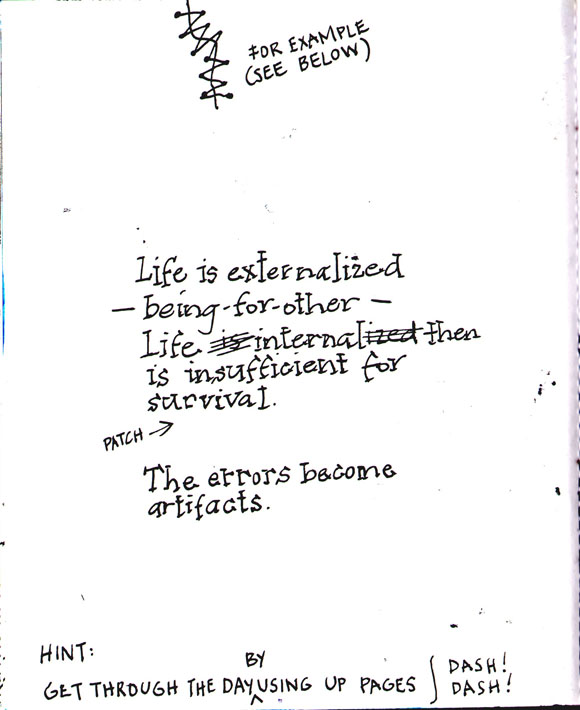 FOR EXAMPLE
(SEE BELOW)
Life is externalized
— being-for-other —
Life is internalized then
is insufficient for
survival.
PATCH →
The errors become
artifacts.
HINT:
BY
GET THROUGH THE DAY ^ USING UP PAGES
DASH!
DASH!